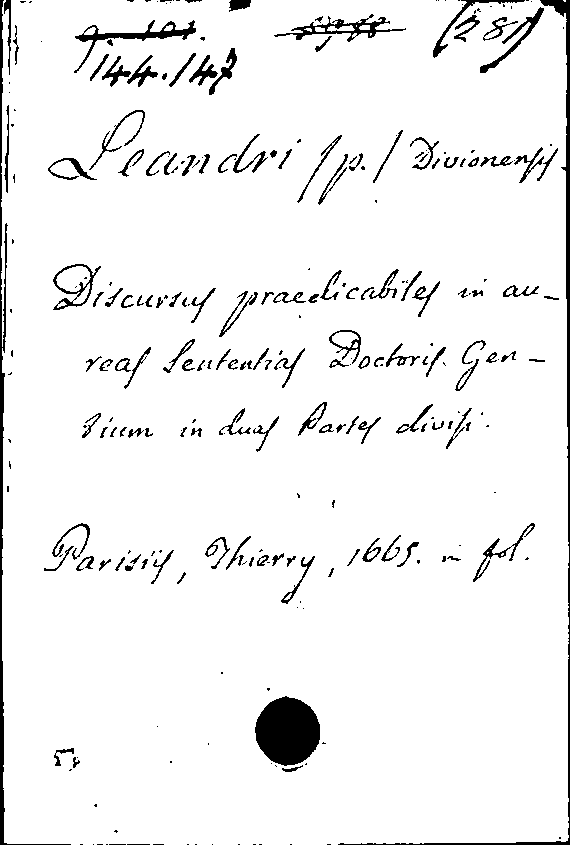 (281)
144.147
Leandri /p./ Divionensis.
Discursus praedicabiles in au-
reas Sententias Doctoris Gen-
tium in duas Partes divisi.
Parisiis, Thierry, 1665. in fol.